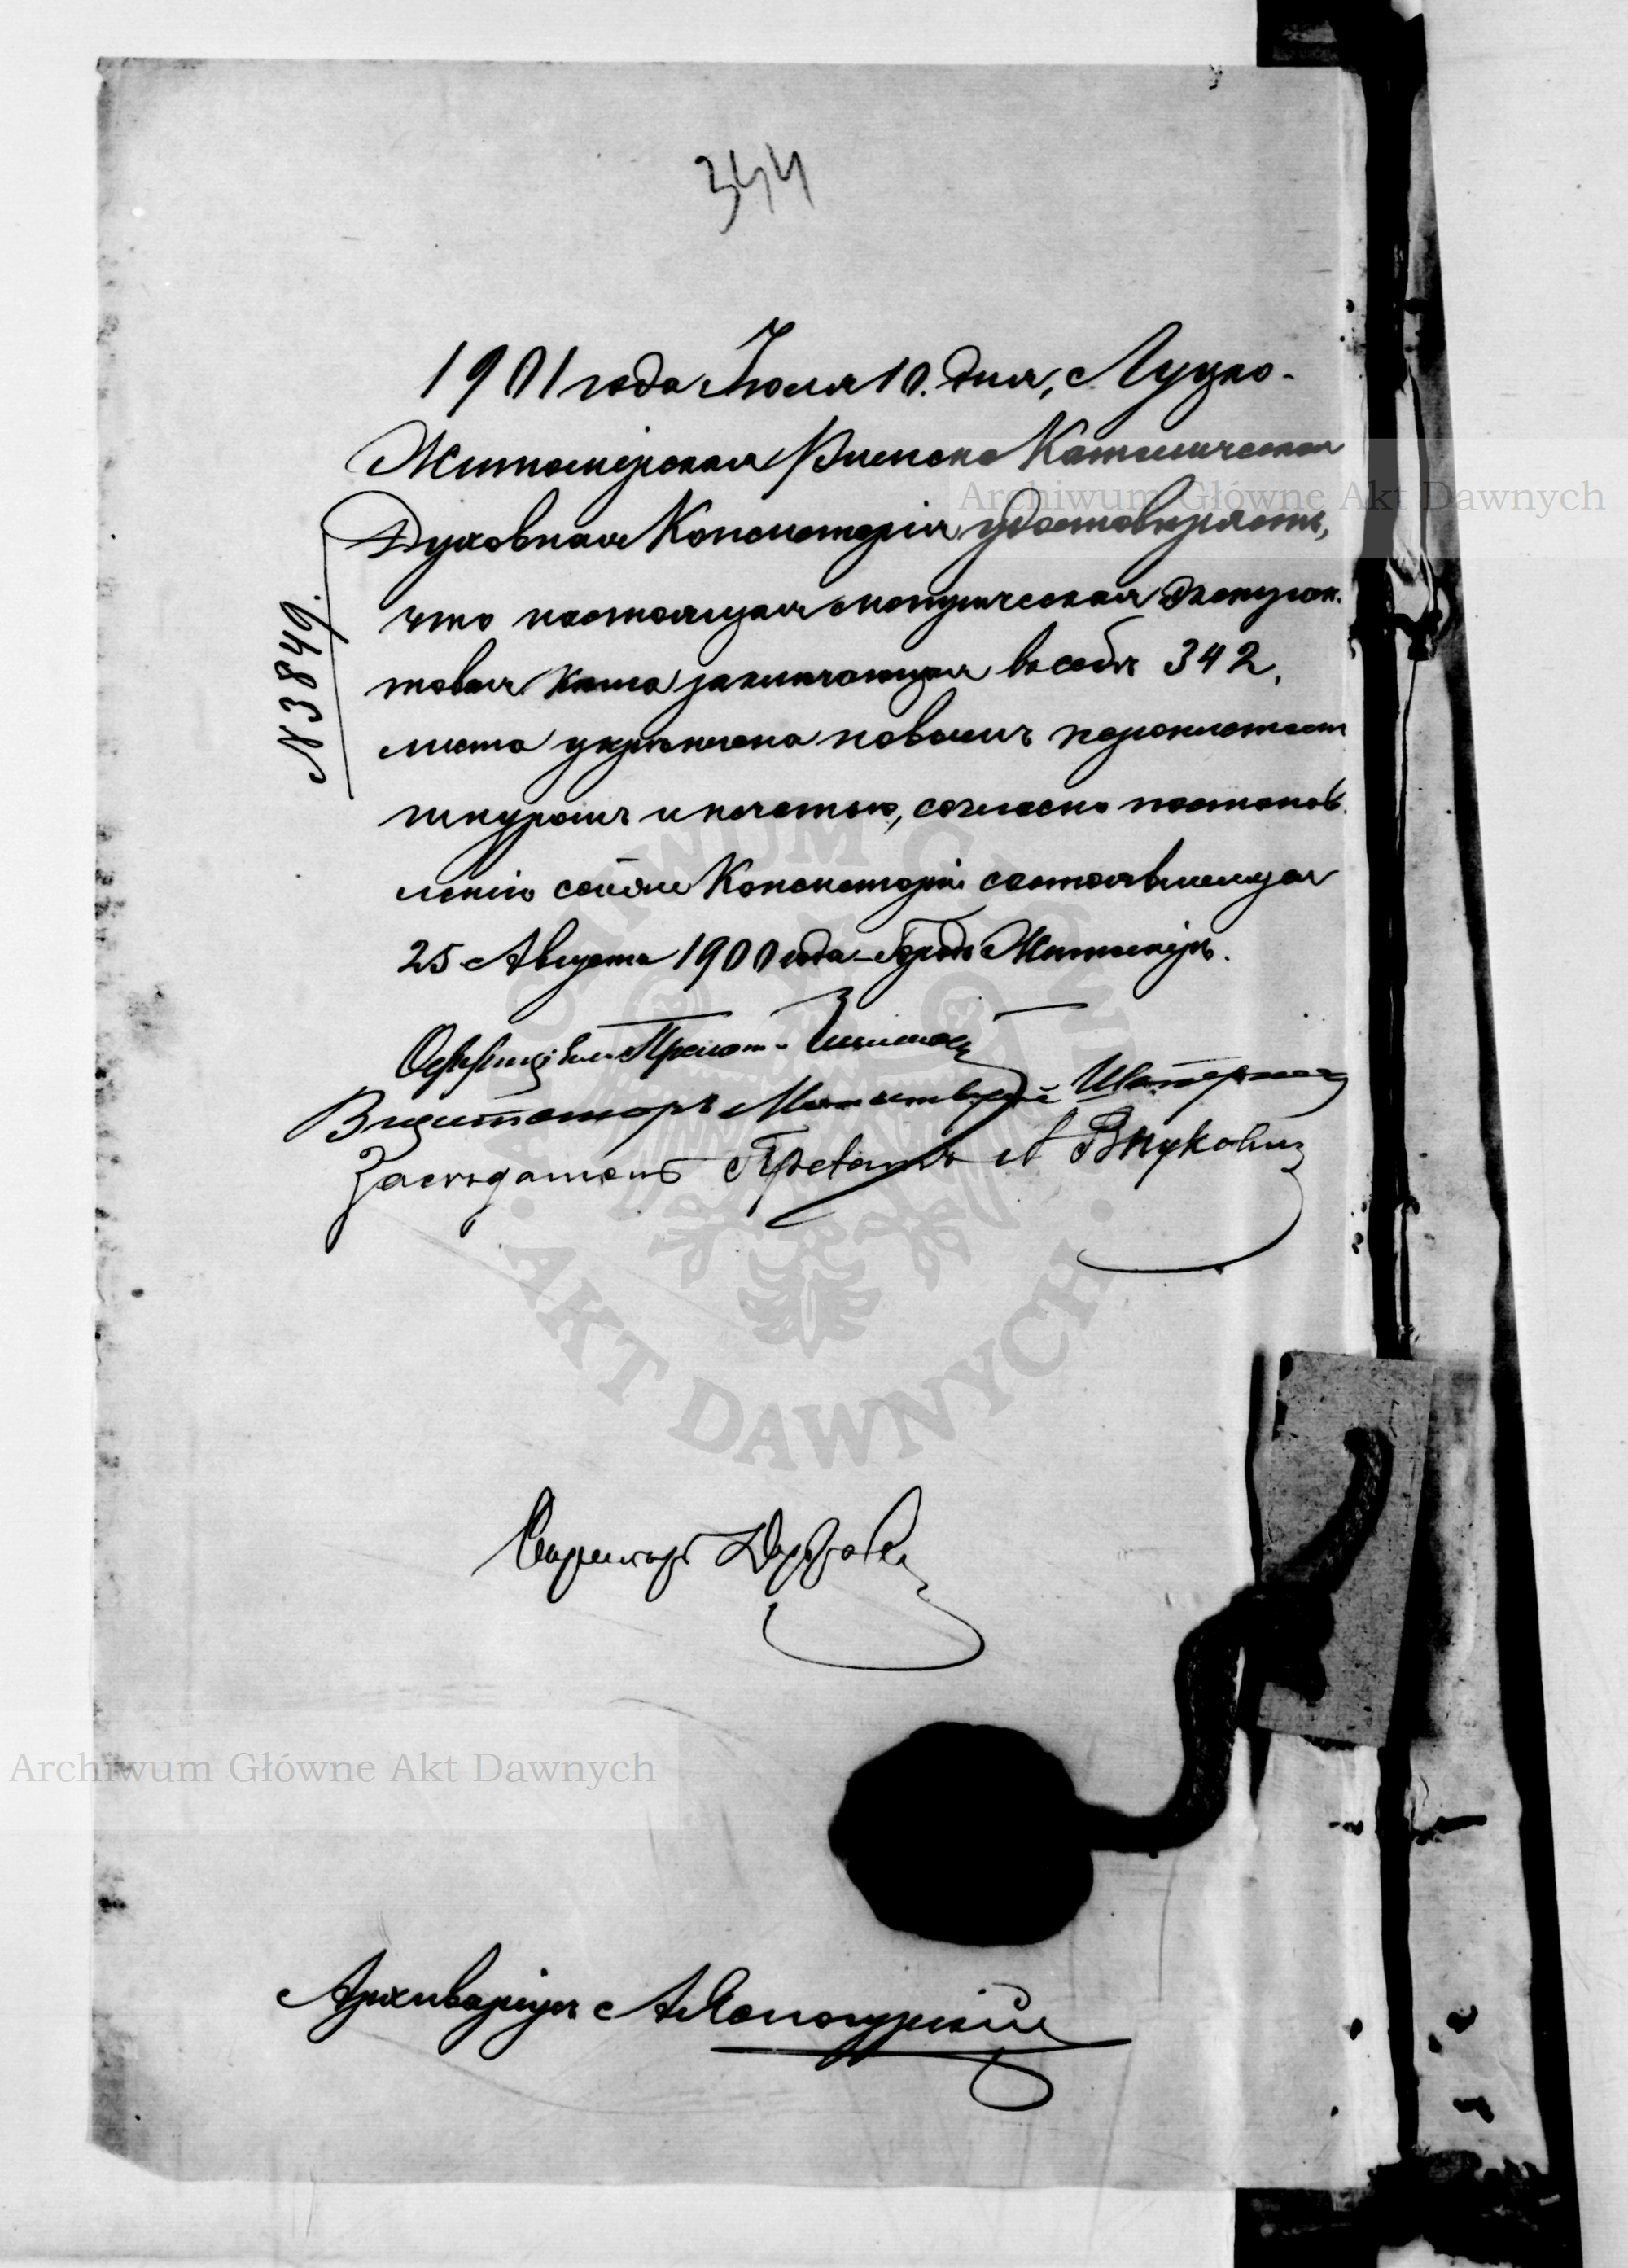 344
1901 года Іюля 10. дня, Луцко-
Житомірская Римско Католическая
Духовная Консисторія удостовѣряетъ,
что настоящая
товая книга заключающая въ себѣ 342.
листа укрѣплена новымъ переплетомъ
шнуромъ и печатью, согласно постанов
ленію сей Консисторіи состоявшемуся
25 Августа 1900 года Городъ Житоміръ.
N 3849.
Оффиціалъ Прелат
Визитаторъ
Засѣдатель Прелатъ А Внуковичъ
Секретарь
Архиваріусъ А
Archiwum Główne Akt Dawnych
Archiwum Główne Akt Dawnych
ARCHIWUM GŁÓWNE • AKT DAWNYCH •